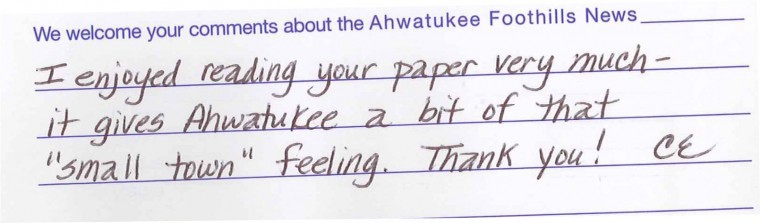 We welcome your comments about the Ahwatukee Foothills News
I enjoyed reading your paper very much-
it gives Ahwatukee a bit of that
"small town" feeling. Thank you! CE